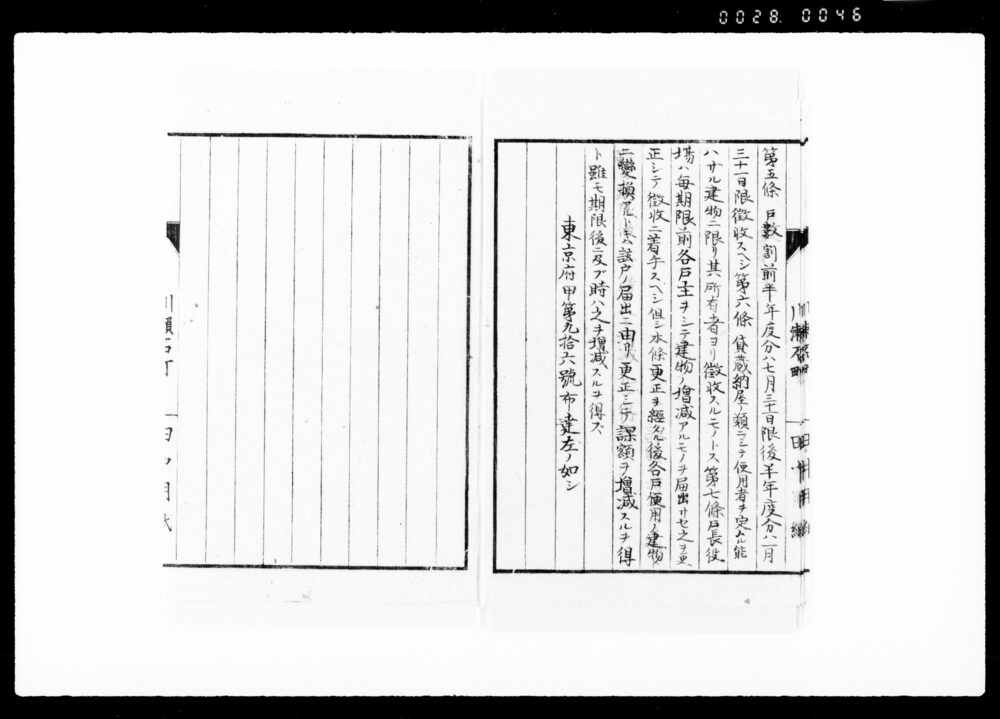 0028 0046
第五條 戸數割前半年度分ハ七月三十一日限後半年度分ハ一月
三十一日限徵收スヘシ第六條 貸藏納屋ノ類ニシテ使用者ヲ定ムル能
ハサル建物ニ限リ其所有者ヨリ徵收スルモノトス第七條戸長役
場ハ每期限前各戸主ヲシテ建物ノ增減アルモノヲ届出サセ之ヲ更
正シテ徵收ニ着手スヘシ但シ本條更正ヲ經タル後各戸使用ノ建物
ニ變換アルトキハ該戸ノ届出ニ由リ更正シテ課額ヲ增減スルヲ得
ト雖モ期限後ニ及ブ時ハ之ヲ增減スルヲ得ズ
東京府甲第九拾六號布達左ノ如シ